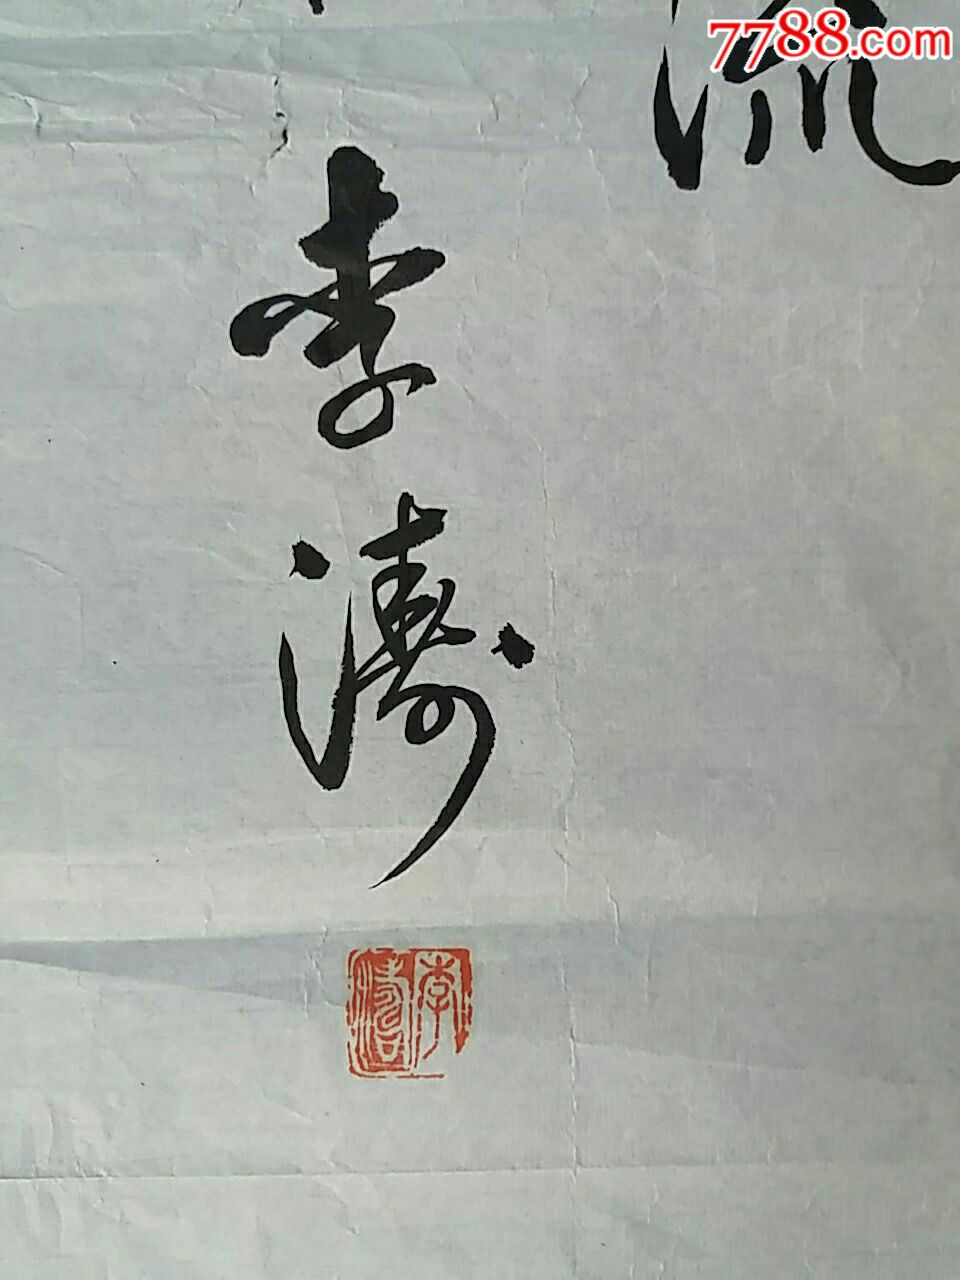 7788.com
流
李濤
李濤